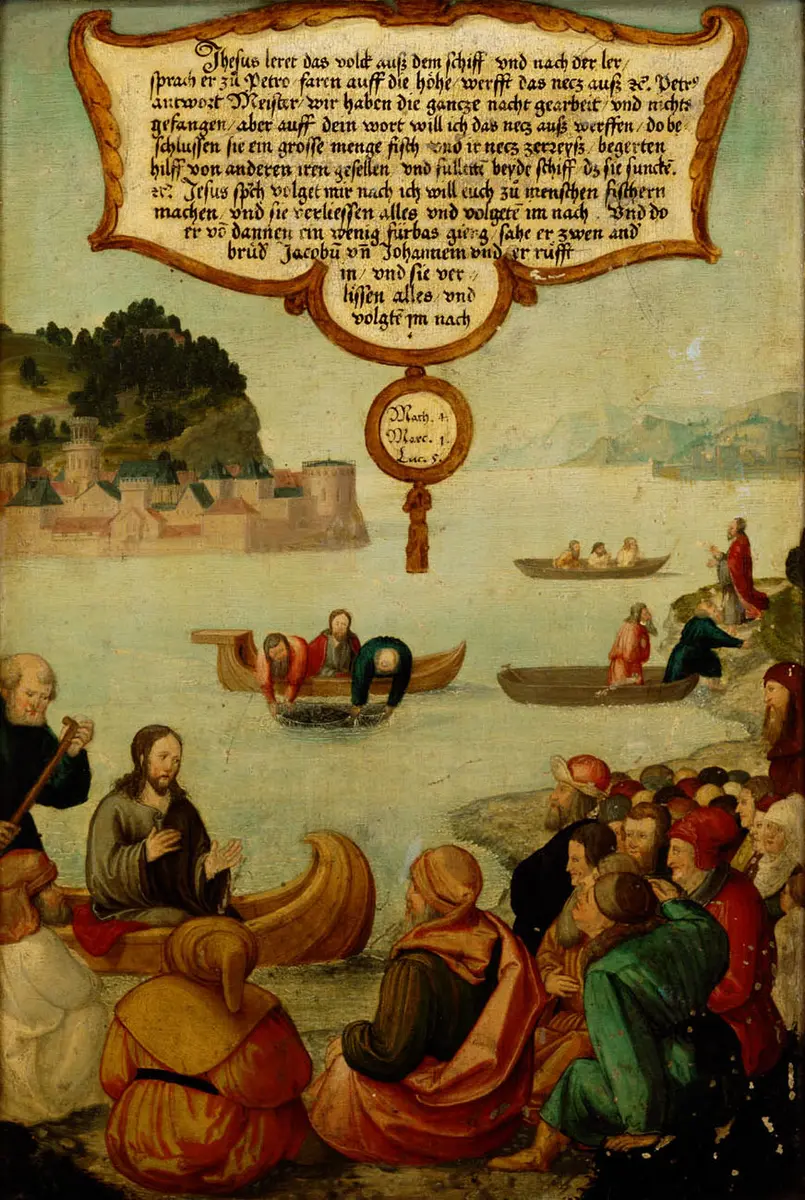 Jhesus leret das volck auß dem schiff vnd nach der ler/
sprach er zů Petro faren auff die höhe/ werfft das necz auß ⁊c. Petr⁹
antwort Meister/ wir haben die gancze nacht gearbeit/ vnd nichts
gefangen/ aber auff dein wort will ich das necz auß werffen/ do be=
schlussen sie ein grosse menge fisch vnd ir necz zerreyß/ begerten
hilff von anderen iren gesellen/ vnd fulletẽ beyde schiff dz sie suncke.
⁊c. Jesus spͨh volget mir nach ich will euch zů menschen fischern
machen/ vnd sie verliessen alles vnd volgetẽ im nach. Vnd do
er võ dannen ein wenig fürbas gieng/ sahe er zwen and
brůd Jacobũ vñ Johannem vnd er rüfft
in/ vnd sie ver=
lissen alles/ vnd
volgtẽ jm nach
Math. 4.
Marc. 1.
Luc. 5.